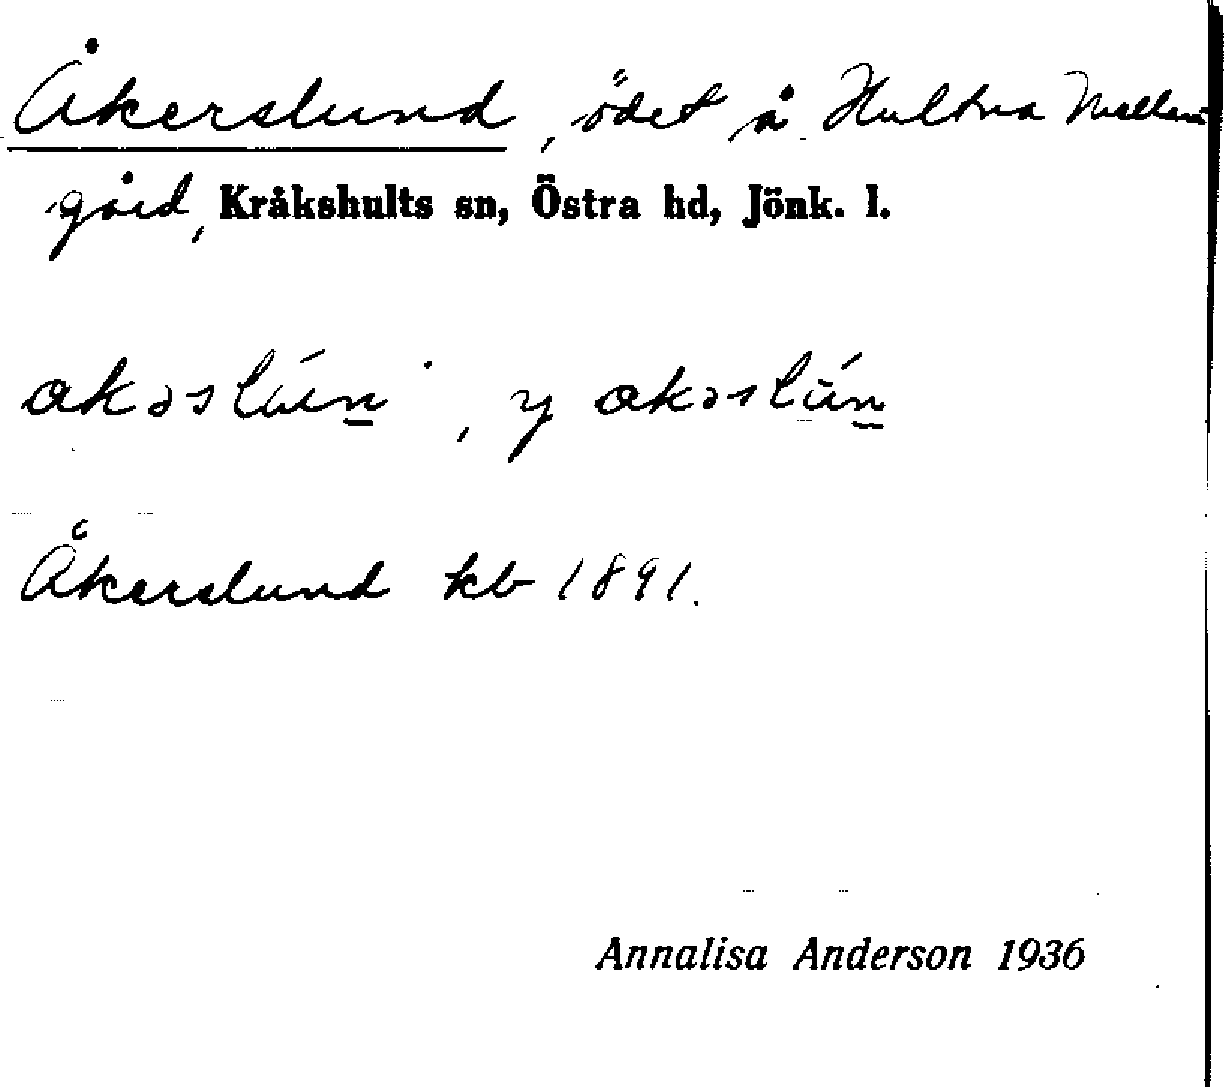 Åkerslund, ödet å Hultna Mellan
gård, Kråkshults sn, Östra hd, Jönk. l.
y
Åkerslund kb 1891.
Annalisa Anderson 1936